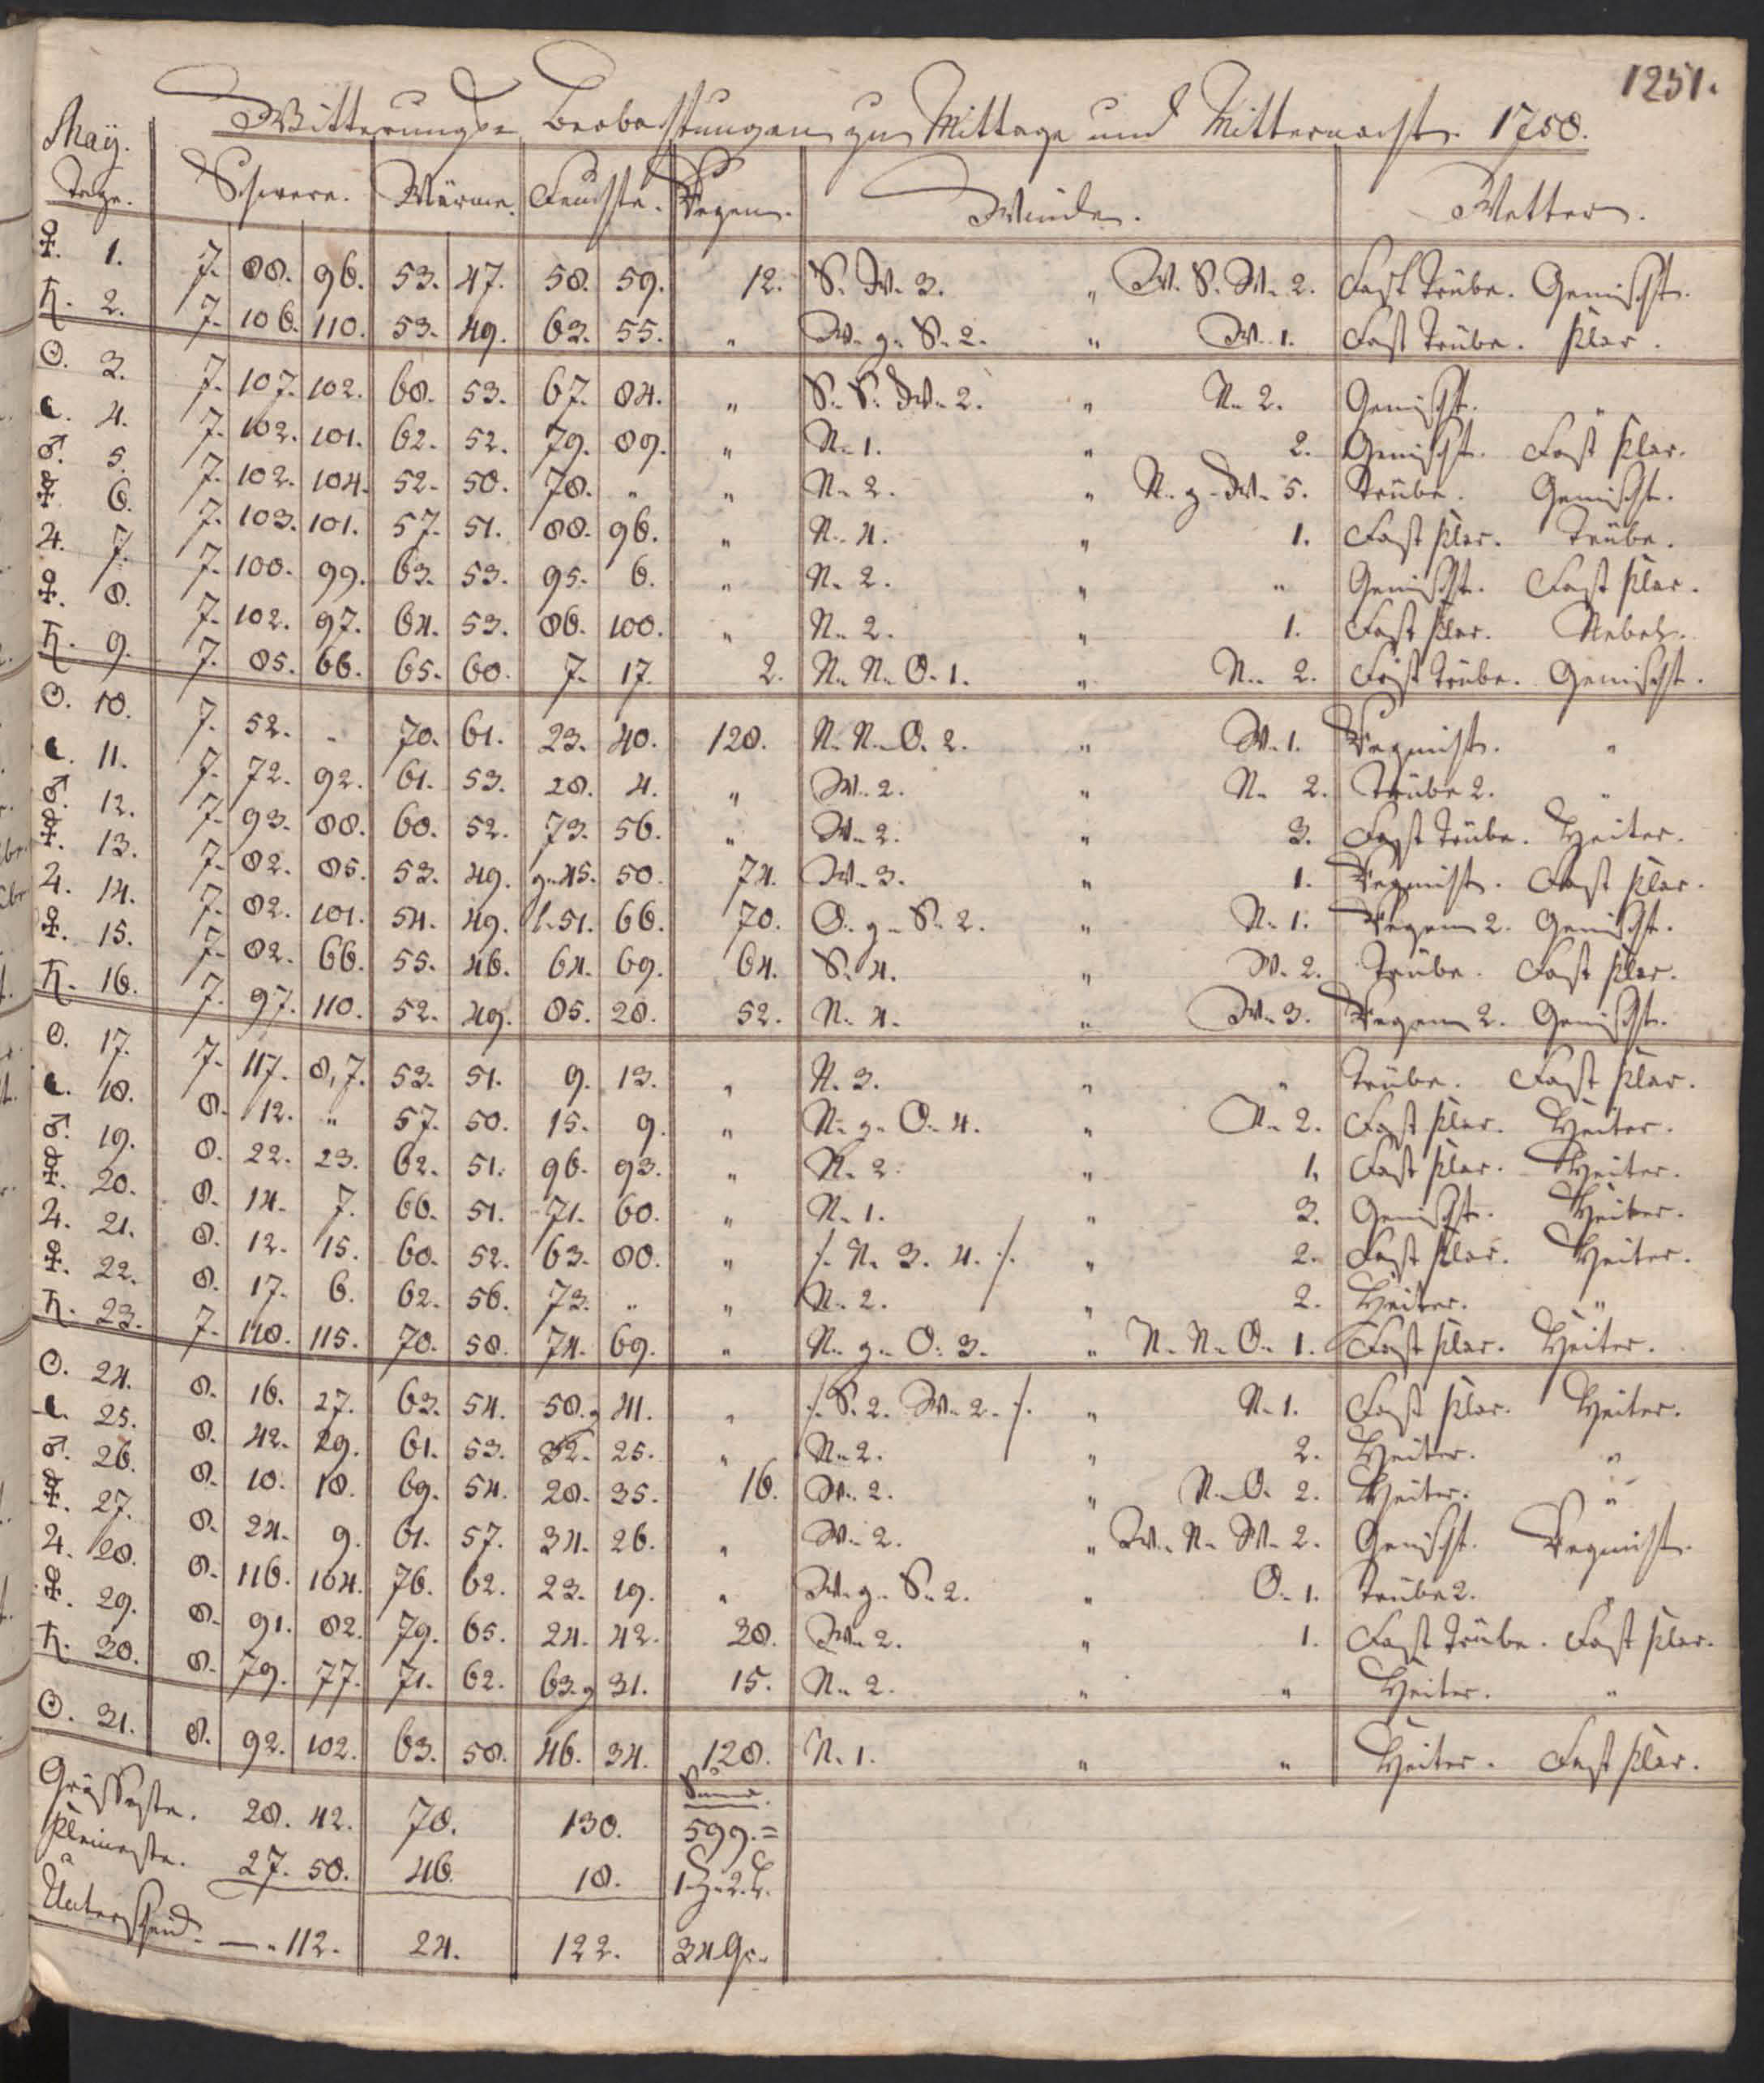 1251.
Witterungs Beobachtungen zu Mittage und Mitternacht. 1750.
Maÿ.
Tage. Schwere. Wärme. Feuchte. Regen. Winde. Wetter.
♀. 1. 7. 88. 96. 53. 47. 58. 59. 12. S. W. 3. „ W. S. W. 2. Fast Trübe. Gemischt.
♄. 2. 7. 106. 110. 53. 49. 63. 55. „ W. g. S. 2. „ W. 1. Fast Trübe. Klar.
☉. 3. 7. 107. 102. 60. 53. 67. 84. „ S. S. W. 2. „ N. 2. Gemischt. „
☾. 4. 7. 102. 101. 62. 52. 79. 89. „ N. 1. „ 2. Gemischt. Fast Klar.
♂. 5. 7. 102. 104. 52. 50. 78. „ „ N. 2. „ N. g. W. 5. Trübe. Gemischt.
☿. 6. 7. 103. 101. 57. 51. 88. 96. „ N. 4. „ 1. Fast Klar. Trübe.
♃. 7. 7. 100. 99. 63. 53. 95. 6. „ N. 2. „ „ Gemischt. Fast Klar.
♀. 8. 7. 102. 97. 64. 53. 86. 100. „ N. 2. „ 1. Fast Klar. Nebel.
♄. 9. 7. 85. 66. 65. 60. 7. 17. 2. N. N. O. 1. „ N. 2. Fast Trübe. Gemischt.
☉. 10. 7. 52. „ 70. 61. 23. 40. 128. N. N. O. 2. „ W. 1. Regnicht. „
☾. 11. 7. 72. 92. 61. 53. 28. 4. „ W. 2. „ N. 2. Trübe 2. „
♂. 12. 7. 93. 88. 60. 52. 73. 56. „ W. 2. „ 3. Fast Trübe. Heiter.
☿. 13. 7. 82. 85. 53. 49. g. 45. 50. 74. W. 3. „ 1. Regnicht. Fast Klar.
♃. 14. 7. 82. 101. 54. 49. 51. 66. 70. O. g. S. 2. „ N. 1. Regen 2. Gemischt.
♀. 15. 7. 82. 66. 55. 46. 64. 69. 64. S. 4. „ W. 2. Trübe. Fast Klar.
♄. 16. 7. 97. 110. 52. 49. 85. 28. 52. N. 4. „ W. 3. Regen 2. Gemischt.
☉. 17. 7. 117. 8,7. 53. 51. 9. 13. „ N. 3. „ „ Trübe. Fast Klar.
☾. 18. 8. 12. „ 57. 50. 15. 9. „ N. g. O. 4. „ N. 2. Fast Klar. Heiter.
♂. 19. 8. 22. 23. 62. 51. 96. 93. „ N. 2. „ 1. Fast Klar. Heiter.
☿. 20. 8. 14. 7. 66. 51. 71. 60. „ N. 1. „ 3. Gemischt. Heiter.
♃. 21. 8. 12. 15. 60. 52. 63. 80. „ /. N. 3. 4. /. „ 2. Fast Klar. Heiter.
♀. 22. 8. 17. 6. 62. 56. 73. „ „ N. 2. „ 2. Heiter. „
♄. 23. 7. 118. 115. 70. 58. 74. 69. „ N. g. O. 3. „ N. N. O. 1. Fast Klar. Heiter.
☉. 24. 8. 16. 27. 63. 54. 50. g 41. „ /. S. 2. W. 2. /. „ N. 1. Fast Klar. Heiter.
☾. 25. 8. 42. 29. 61. 53. 32. 25. „ N. 2. „ 2. Heiter. „
♂. 26. 8. 10. 18. 69. 54. 28. 35. 16. W. 2. „ N. O. 2. Heiter. „
☿. 27. 8. 24. 9. 61. 57. 34. 26. „ W. 2. „ W. N. W. 2. Gemischt. Regnicht.
♃. 28. 8. 116. 104. 76. 62. 23. 19. „ W. g. S. 2. „ O. 1. Trübe 2. „
♀. 29. 8. 91. 82. 79. 65. 24. 42. 38. W. 2. „ 1. Fast Trübe. Fast Klar.
♄. 30. 8. 79. 77. 71. 62. 63. g 31. 15. N. 2. „ „ Heiter. „
☉. 31. 8. 92. 102. 63. 58. 46. 34. 128. N. 1. „ „ Heiter. Fast Klar.
Größeste. 28. 42. 70. 130. Summ. 599. =
Kleineste. 27. 50. 46. 18. 1. 2.
Unterscheid. — „ 112. 24. 122. 34 Gr.